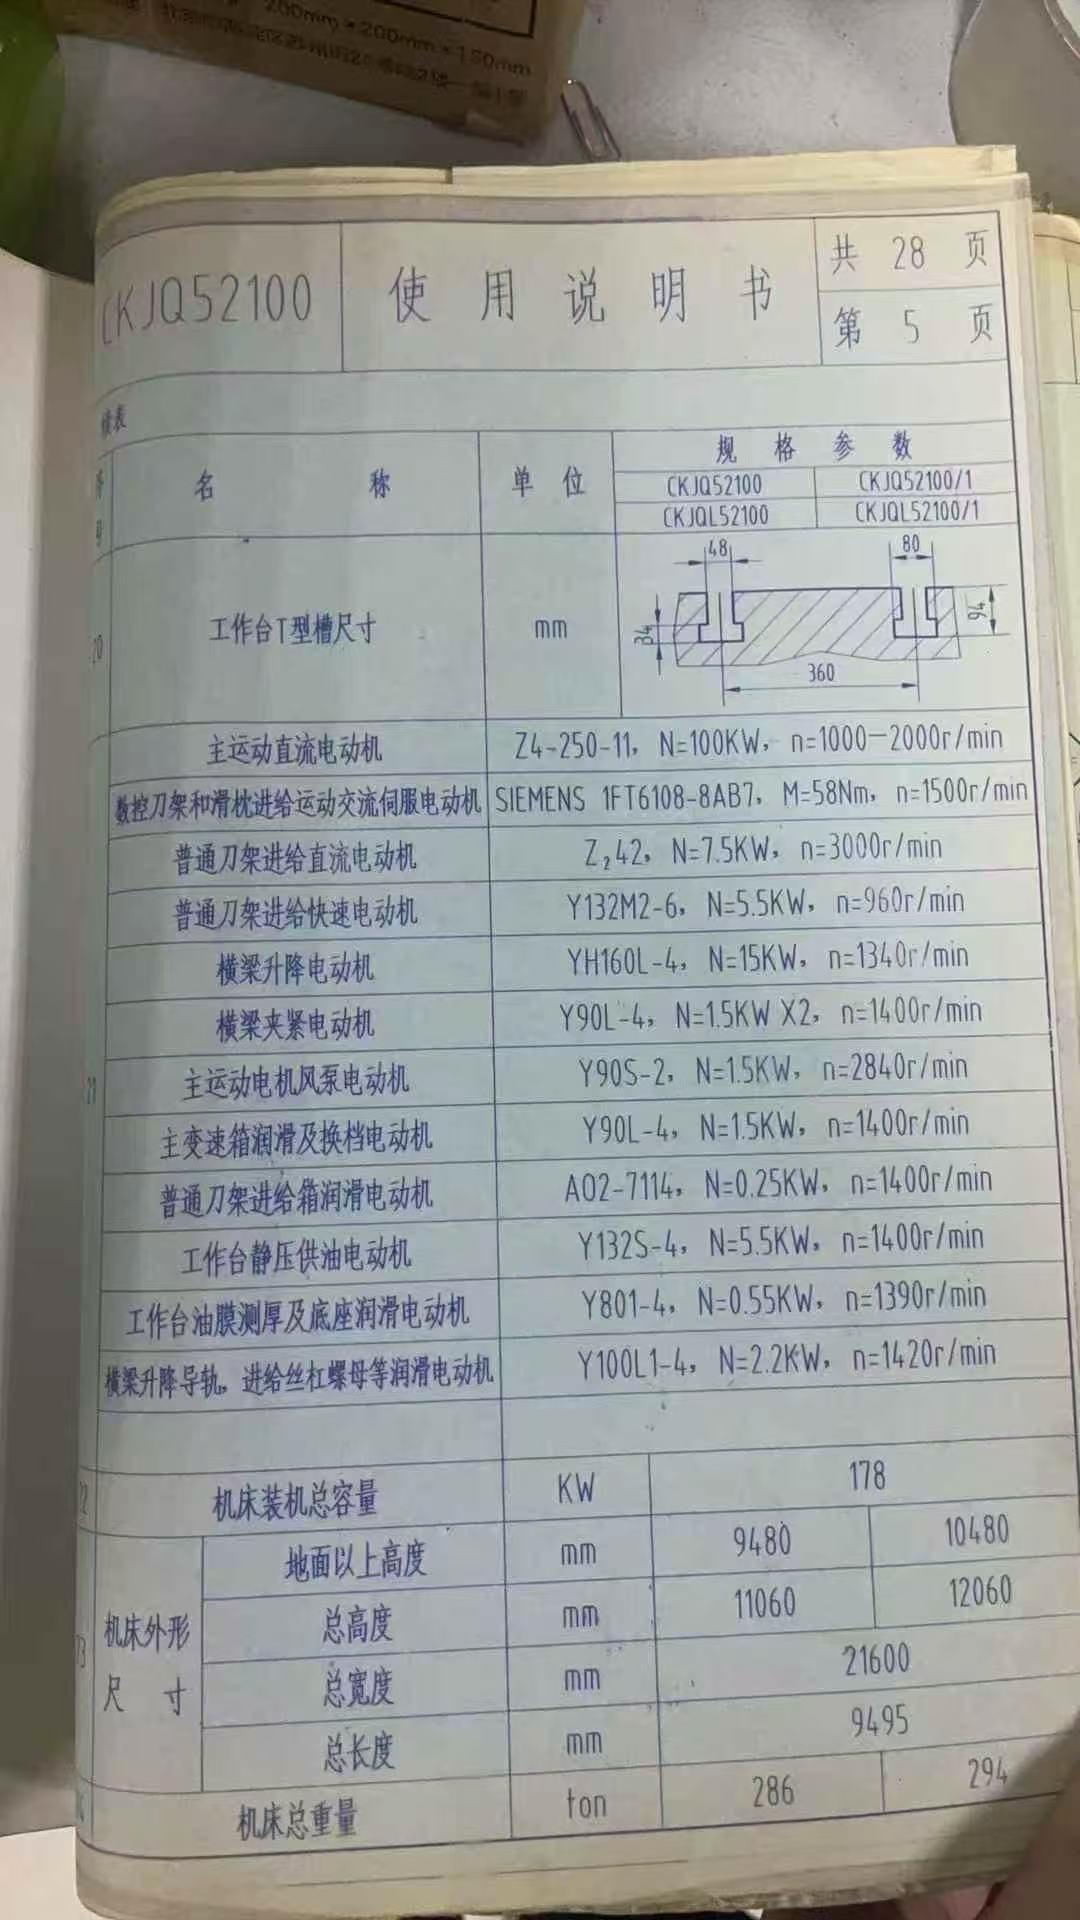 200mm*200mm*150mm
CKJQ52100
使用说明书
共 28 页
第 5 页
续表
序号
名称
单位
规格参数
CKJQ52100
CKJQ52100/1
CKJQL52100
CKJQL52100/1
20
工作台T型槽尺寸
mm
48
80
34
94
360
21
主运动直流电动机
Z4-250-11, N=100KW, n=1000—2000r/min
数控刀架和滑枕进给运动交流伺服电动机
SIEMENS 1FT6108-8AB7, M=58Nm, n=1500r/min
普通刀架进给直流电动机
Z₂42, N=7.5KW, n=3000r/min
普通刀架进给快速电动机
Y132M2-6, N=5.5KW, n=960r/min
横梁升降电动机
YH160L-4, N=15KW, n=1340r/min
横梁夹紧电动机
Y90L-4, N=1.5KW X2, n=1400r/min
主运动电机风泵电动机
Y90S-2, N=1.5KW, n=2840r/min
主变速箱润滑及换档电动机
Y90L-4, N=1.5KW, n=1400r/min
普通刀架进给箱润滑电动机
AO2-7114, N=0.25KW, n=1400r/min
工作台静压供油电动机
Y132S-4, N=5.5KW, n=1400r/min
工作台油膜测厚及底座润滑电动机
Y801-4, N=0.55KW, n=1390r/min
横梁升降导轨, 进给丝杠螺母等润滑电动机
Y100L1-4, N=2.2KW, n=1420r/min
22
机床装机总容量
KW
178
机床外形
尺寸
地面以上高度
mm
9480
10480
总高度
mm
11060
12060
总宽度
mm
21600
总长度
mm
9495
机床总重量
ton
286
294